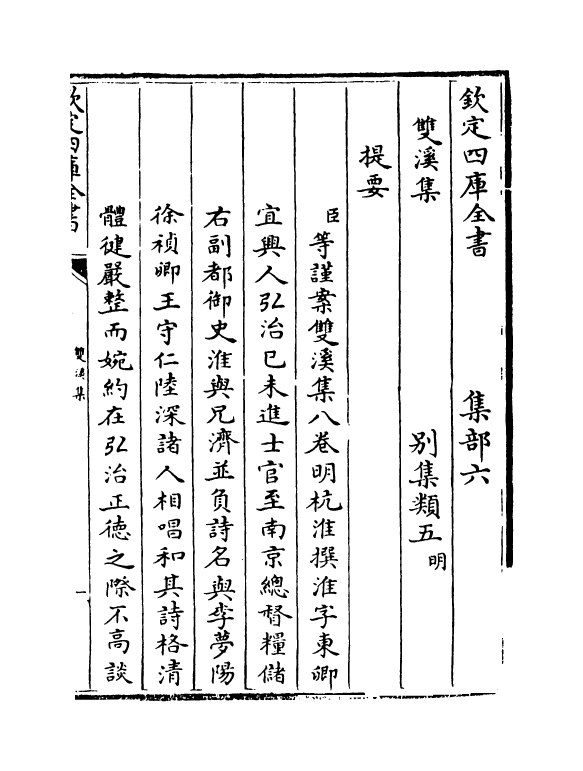 欽定四庫全書　集部六
雙溪集　別集類五明
提要
臣等謹案雙溪集八卷明杭淮撰淮字東卿
宜興人弘治已未進士官至南京總督糧儲
右副都御史淮與兄濟並負詩名與李夢陽
徐禎卿王守仁陸深諸人相唱和其詩格清
體健嚴整而婉約在弘治正德之際不高談
欽定四庫全書
雙溪集
一